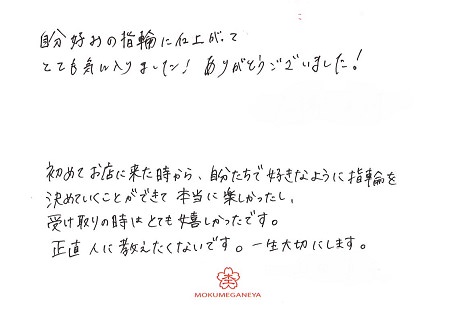 自分好みの指輪に仕上がって
とても気に入りました！ ありがとうございました！
初めてお店に来た時から、自分たちで好きなように指輪を
決めていくことができて本当に楽しかったし、
受け取りの時はとても嬉しかったです。
正直人に教えたくないです。一生大切にします。
MOKUMEGANEYA